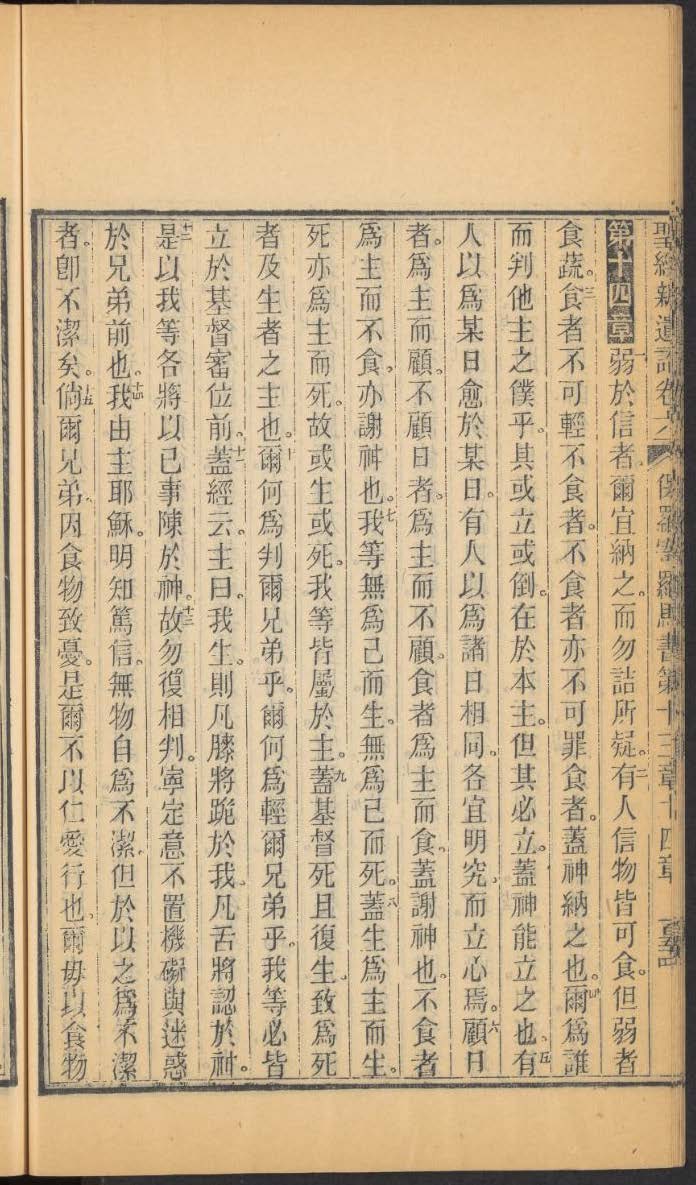 聖經新遺詔卷六　保羅寄羅馬書第十三章十四章
第十四章　一弱於信者爾宜納之。而勿詰所疑。二有人信物皆可食。但弱者
食蔬。三食者不可輕不食者。不食者亦不可罪食者。蓋神納之也。四爾爲誰
而判他主之僕乎。其或立或倒。在於本主。但其必立。蓋神能立之也。五有
人以爲某日愈於某日。有人以爲諸日相同。各宜明究。而立心焉。六顧日
者。爲主而顧。不顧日者。爲主而不顧。食者爲主而食。蓋謝神也。不食者
爲主而不食。亦謝神也。七我等無爲己而生。無爲己而死。八蓋生爲主而生。
死亦爲主而死。故或生或死。我等皆屬於主。九蓋基督死且復生。致爲死
者及生者之主也。十爾何爲判爾兄弟乎。爾何爲輕爾兄弟乎。我等必皆
立於基督審位前。十一蓋經云。主曰。我生。則凡膝將跪於我。凡舌將認於神。
十二是以我等各將以己事陳於神。十三故勿復相判。寧定意不置機礙與迷惑
於兄弟前也。十四我由主耶穌。明知篤信。無物自爲不潔。但於以之爲不潔
者。卽不潔矣。十五倘爾兄弟。因食物致憂。是爾不以仁愛行也。爾毋以食物